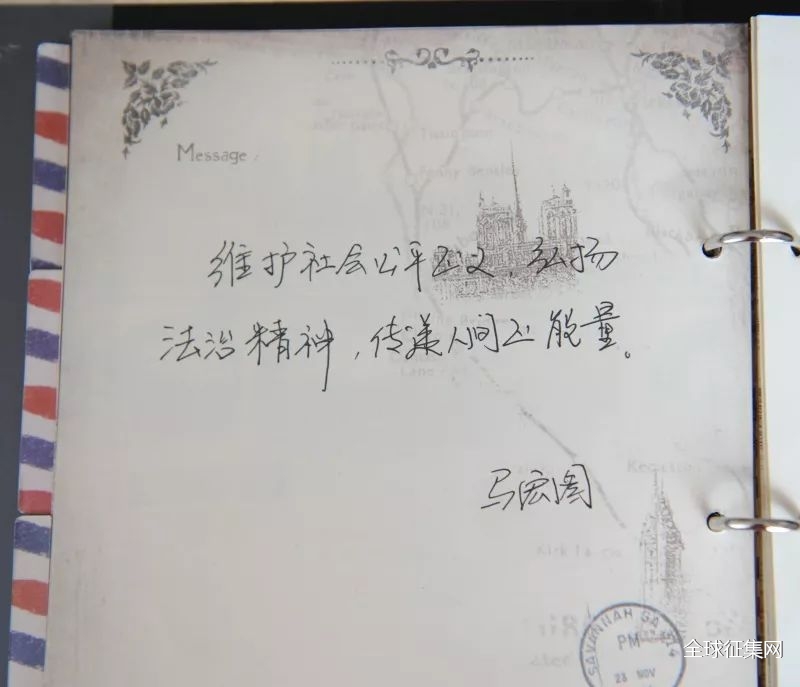 Message:
维护社会公平正义，弘扬
法治精神，传递人间正能量。
马宏图
SAVANNAH GA
PM
23 NOV
全球征集网